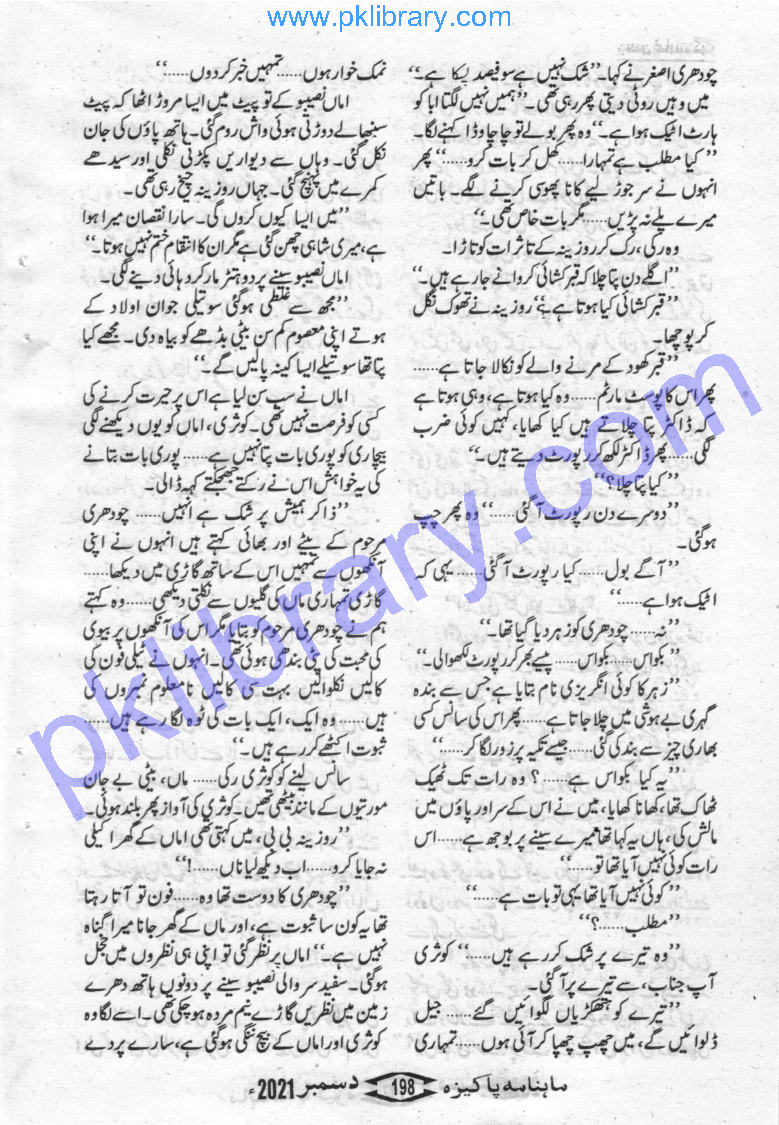 www.pklibrary.com
چودھری اصغر نے کہا۔ ”شک نہیں ہے سو فیصد پکا ہے۔“
میں وہیں روٹی دیتی پھر رہی تھی۔ ”ہمیں نہیں لگتا ابا کو
ہارٹ اٹیک ہوا ہے۔“ وہ پھر بولے تو چاچا وڈا کہنے لگا۔
”کیا مطلب ہے تمہارا...... کھل کر بات کرو......“ پھر
انہوں نے سر جوڑ لیے کانا پھوسی کرنے لگے۔ باتیں
میرے پلے نہ پڑیں...... مگر بات خاص تھی۔“
وہ رکی، رک کر روزینہ کے تاثرات کو تاڑا۔
”اگلے دن پتا چلا کہ قبر کشائی کروانے جا رہے ہیں۔“
”قبر کشائی کیا ہوتا ہے؟“ روزینہ نے تھوک نگل
کر پوچھا۔
”قبر کھود کے مرنے والے کو نکالا جاتا ہے......
پھر اس کا پوسٹ مارٹم...... وہ کیا ہوتا ہے، وہی ہوتا ہے
کہ ڈاکٹر پتا چلاتے ہیں کیا کھایا، کہیں کوئی ضرب
لگی...... پھر ڈاکٹر لکھ کر رپورٹ دیتے ہیں۔“
”کیا پتا چلا؟“
”دوسرے دن رپورٹ آ گئی......“ وہ پھر چپ
ہو گئی۔
”آگے بول...... کیا رپورٹ آ گئی...... یہی کہ
اٹیک ہوا ہے......“
”نہ...... چودھری کو زہر دیا گیا تھا۔“
”بکواس...... بکواس...... پیسے بھر کر رپورٹ لکھوالی۔“
”زہر کا کوئی انگریزی نام بتایا ہے جس سے بندہ
گہری بے ہوشی میں چلا جاتا ہے...... پھر اس کی سانس کسی
بھاری چیز سے بند کی گئی...... جیسے تکیہ پر زور لگا کر......“
”یہ کیا بکواس ہے......؟ وہ رات تک ٹھیک
ٹھاک تھا، کھانا کھایا، میں نے اس کے سر اور پاؤں میں
مالش کی، ہاں یہ کہا تھا میرے سینے پر بوجھ ہے...... اس
رات کوئی نہیں آیا تھا تو......“
”کوئی نہیں آیا تھا یہی تو بات ہے......“
”مطلب......؟“
”وہ تیرے پر شک کر رہے ہیں......“ کوثری
آپ جناب، سے تیرے پر آ گئی۔
”تیرے کو ہتھکڑیاں لگوائیں گے...... جیل
ڈلوائیں گے، میں چھپ چھپا کر آئی ہوں...... تمہاری
نمک خوار ہوں...... تمہیں خبر کر دوں......“
اماں نصیبو کے تو پیٹ میں ایسا مروڑ اٹھا کہ پیٹ
سنبھالے دوڑتی ہوئی واش روم گئی۔ ہاتھ پاؤں کی جان
نکل گئی۔ وہاں سے دیواریں پکڑتی نکلی اور سیدھے
کمرے میں پہنچ گئی۔ جہاں روزینہ چیخ رہی تھی۔
”میں ایسا کیوں کروں گی۔ سارا نقصان میرا ہوا
ہے، میری شاہی چھن گئی ہے مگر ان کا انتقام ختم نہیں ہوتا۔“
اماں نصیبو سینے پر دو ہتنر مار کر دہائی دینے لگی۔
”مجھ سے غلطی ہو گئی سوتیلی جوان اولاد کے
ہوتے اپنی معصوم کم سن بیٹی بڈھے کو بیاہ دی۔ مجھے کیا
پتا تھا سوتیلے ایسا کینہ پالیں گے۔“
اماں نے سب سن لیا ہے اس پر حیرت کرنے کی
کسی کو فرصت نہیں تھی۔ کوثری، اماں کو یوں دیکھنے لگی
بیچاری کو پوری بات پتا نہیں ہے...... پوری بات بتانے
کی یہ خواہش اس نے رکتے جھجکتے کہہ ڈالی۔
”ذاکر ہمیش پر شک ہے انہیں...... چودھری
مرحوم کے بیٹے اور بھائی کہتے ہیں انہوں نے اپنی
آنکھوں سے تمہیں اس کے ساتھ گاڑی میں دیکھا......
گاڑی تمہاری ماں کی گلیوں سے نکلتی دیکھی...... وہ کہتے
ہم نے چودھری مرحوم کو بتایا مگر اس کی آنکھوں پر بیوی
کی محبت کی پٹی بندھی ہوئی تھی۔ انہوں نے ٹیلی فون کی
کالیں نکلوائیں بہت سی کالیں نامعلوم نمبروں کی
ہیں...... وہ ایک، ایک بات کی ٹوہ لگا رہے ہیں......
ثبوت اکٹھے کر رہے ہیں۔“
سانس لینے کو کوثری رکی...... ماں، بیٹی بے جان
مورتیوں کے مانند بیٹھی تھیں۔ کوثری کی آواز پھر بلند ہوئی۔
”روزینہ بی بی، میں کہتی تھی اماں کے گھر اکیلی
نہ جایا کرو...... اب دیکھ لیا ناں......!“
”چودھری کا دوست تھا وہ...... فون تو آتا رہتا
تھا یہ کون سا ثبوت ہے، اور ماں کے گھر جانا میرا گناہ
نہیں ہے۔“ اماں پر نظر گئی تو اپنی ہی نظروں میں خجل
ہو گئی۔ سفید سر والی نصیبو سینے پر دونوں ہاتھ دھرے
زمین میں نظریں گاڑے نیم مردہ ہو چکی تھی۔ اسے لگا وہ
کوثری اور اماں کے بیچ ننگی ہو گئی ہے، سارے پردے
ماہنامہ پاکیزہ 198 دسمبر 2021ء
pklibrary.com